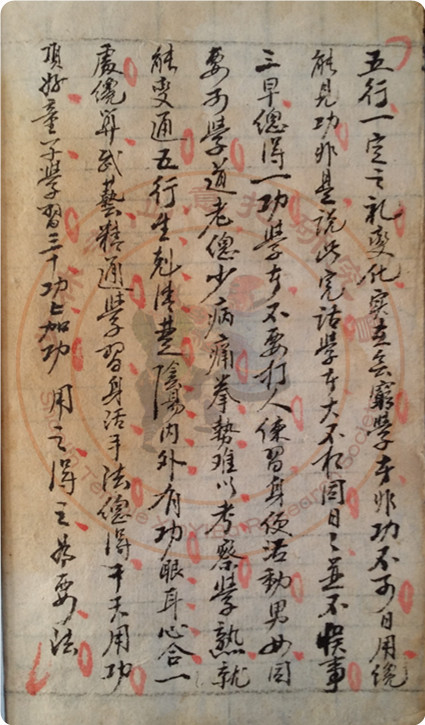 五行一定之礼变化实在无窮學本非功不可日用纔
能見功非是说此完话學本大不相同日々並不悮事
三早總得一功學本不要打人練習身便活動男女同
要可學道老德少病痛拳勢难以考察學熟就
能变通五行生剋清楚陰陽内外有功眼耳心合一
處纔算武藝精通學習身活手法總得千天用功
頂好童子學習三十功上加功 用之得之為要法